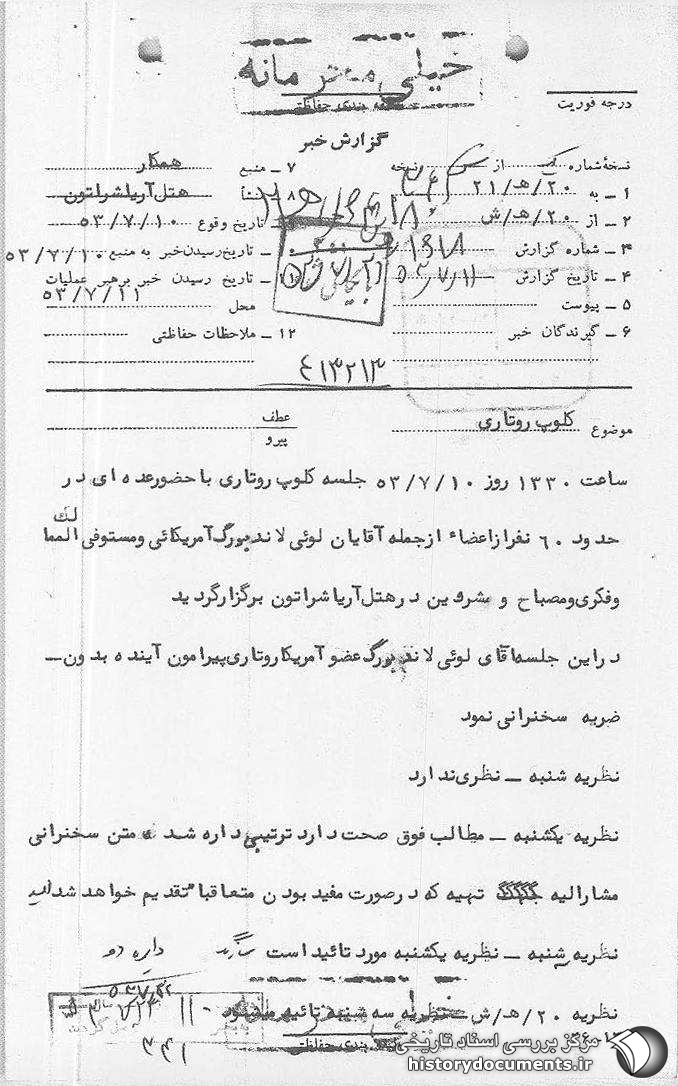 خیلی محرمانه
طبقه بندی حفاظتی
درجه فوریت
گزارش خبر
نسخهٔ شماره یک از نسخه
۷ ـ منبع همکار
۱ ـ به ۲۰/ه‍/۲۱
۸ ـ منشأ هتل آریا شراتون
۲ ـ از ۲۰/ه‍/ش
تاریخ وقوع ۵۳/۷/۱۰
۳ ـ شماره گزارش
تاریخ رسیدن خبر به منبع ۵۳/۷/۱۰
۴ ـ تاریخ گزارش ۵۳/۷/۱۱
تاریخ رسیدن خبر برهبر عملیات
۵ ـ پیوست
محل ۵۳/۷/۱۱
۶ ـ گیرندگان خبر
۱۲ ـ ملاحظات حفاظتی
۴۱۳۲۱۳
موضوع کلوپ روتاری
عطف
پیرو
ساعت ۱۳۳۰ روز ۵۳/۷/۱۰ جلسه کلوپ روتاری با حضور عده ای در
حدود ۶۰ نفر از اعضاء از جمله آقایان لوئی لاندبورگ آمریکائی و مستوفی الممالک
و فکری و مصباح و مشروین در هتل آریا شراتون برگزار گردید
در این جلسه آقای لوئی لاندبورگ عضو آمریکا روتاری پیرامون آینده بدون ـ
ضربه سخنرانی نمود
نظریه شنبه ـ نظری ندارد
نظریه یکشنبه ـ مطالب فوق صحت دارد ترتیبی داره شد ه متن سخنرانی
مشارالیه تهیه که در صورت مفید بودن متعاقبا" تقدیم خواهد شد
نظریه ۳شنبه ـ نظریه یکشنبه مورد تائید است
دایره دو
نظریه ۲۰/ه‍/ش ـ نظریه سه شنبه تائید میشود
طبقه بندی حفاظتی
مرکز بررسی اسناد تاریخی
historydocuments.ir